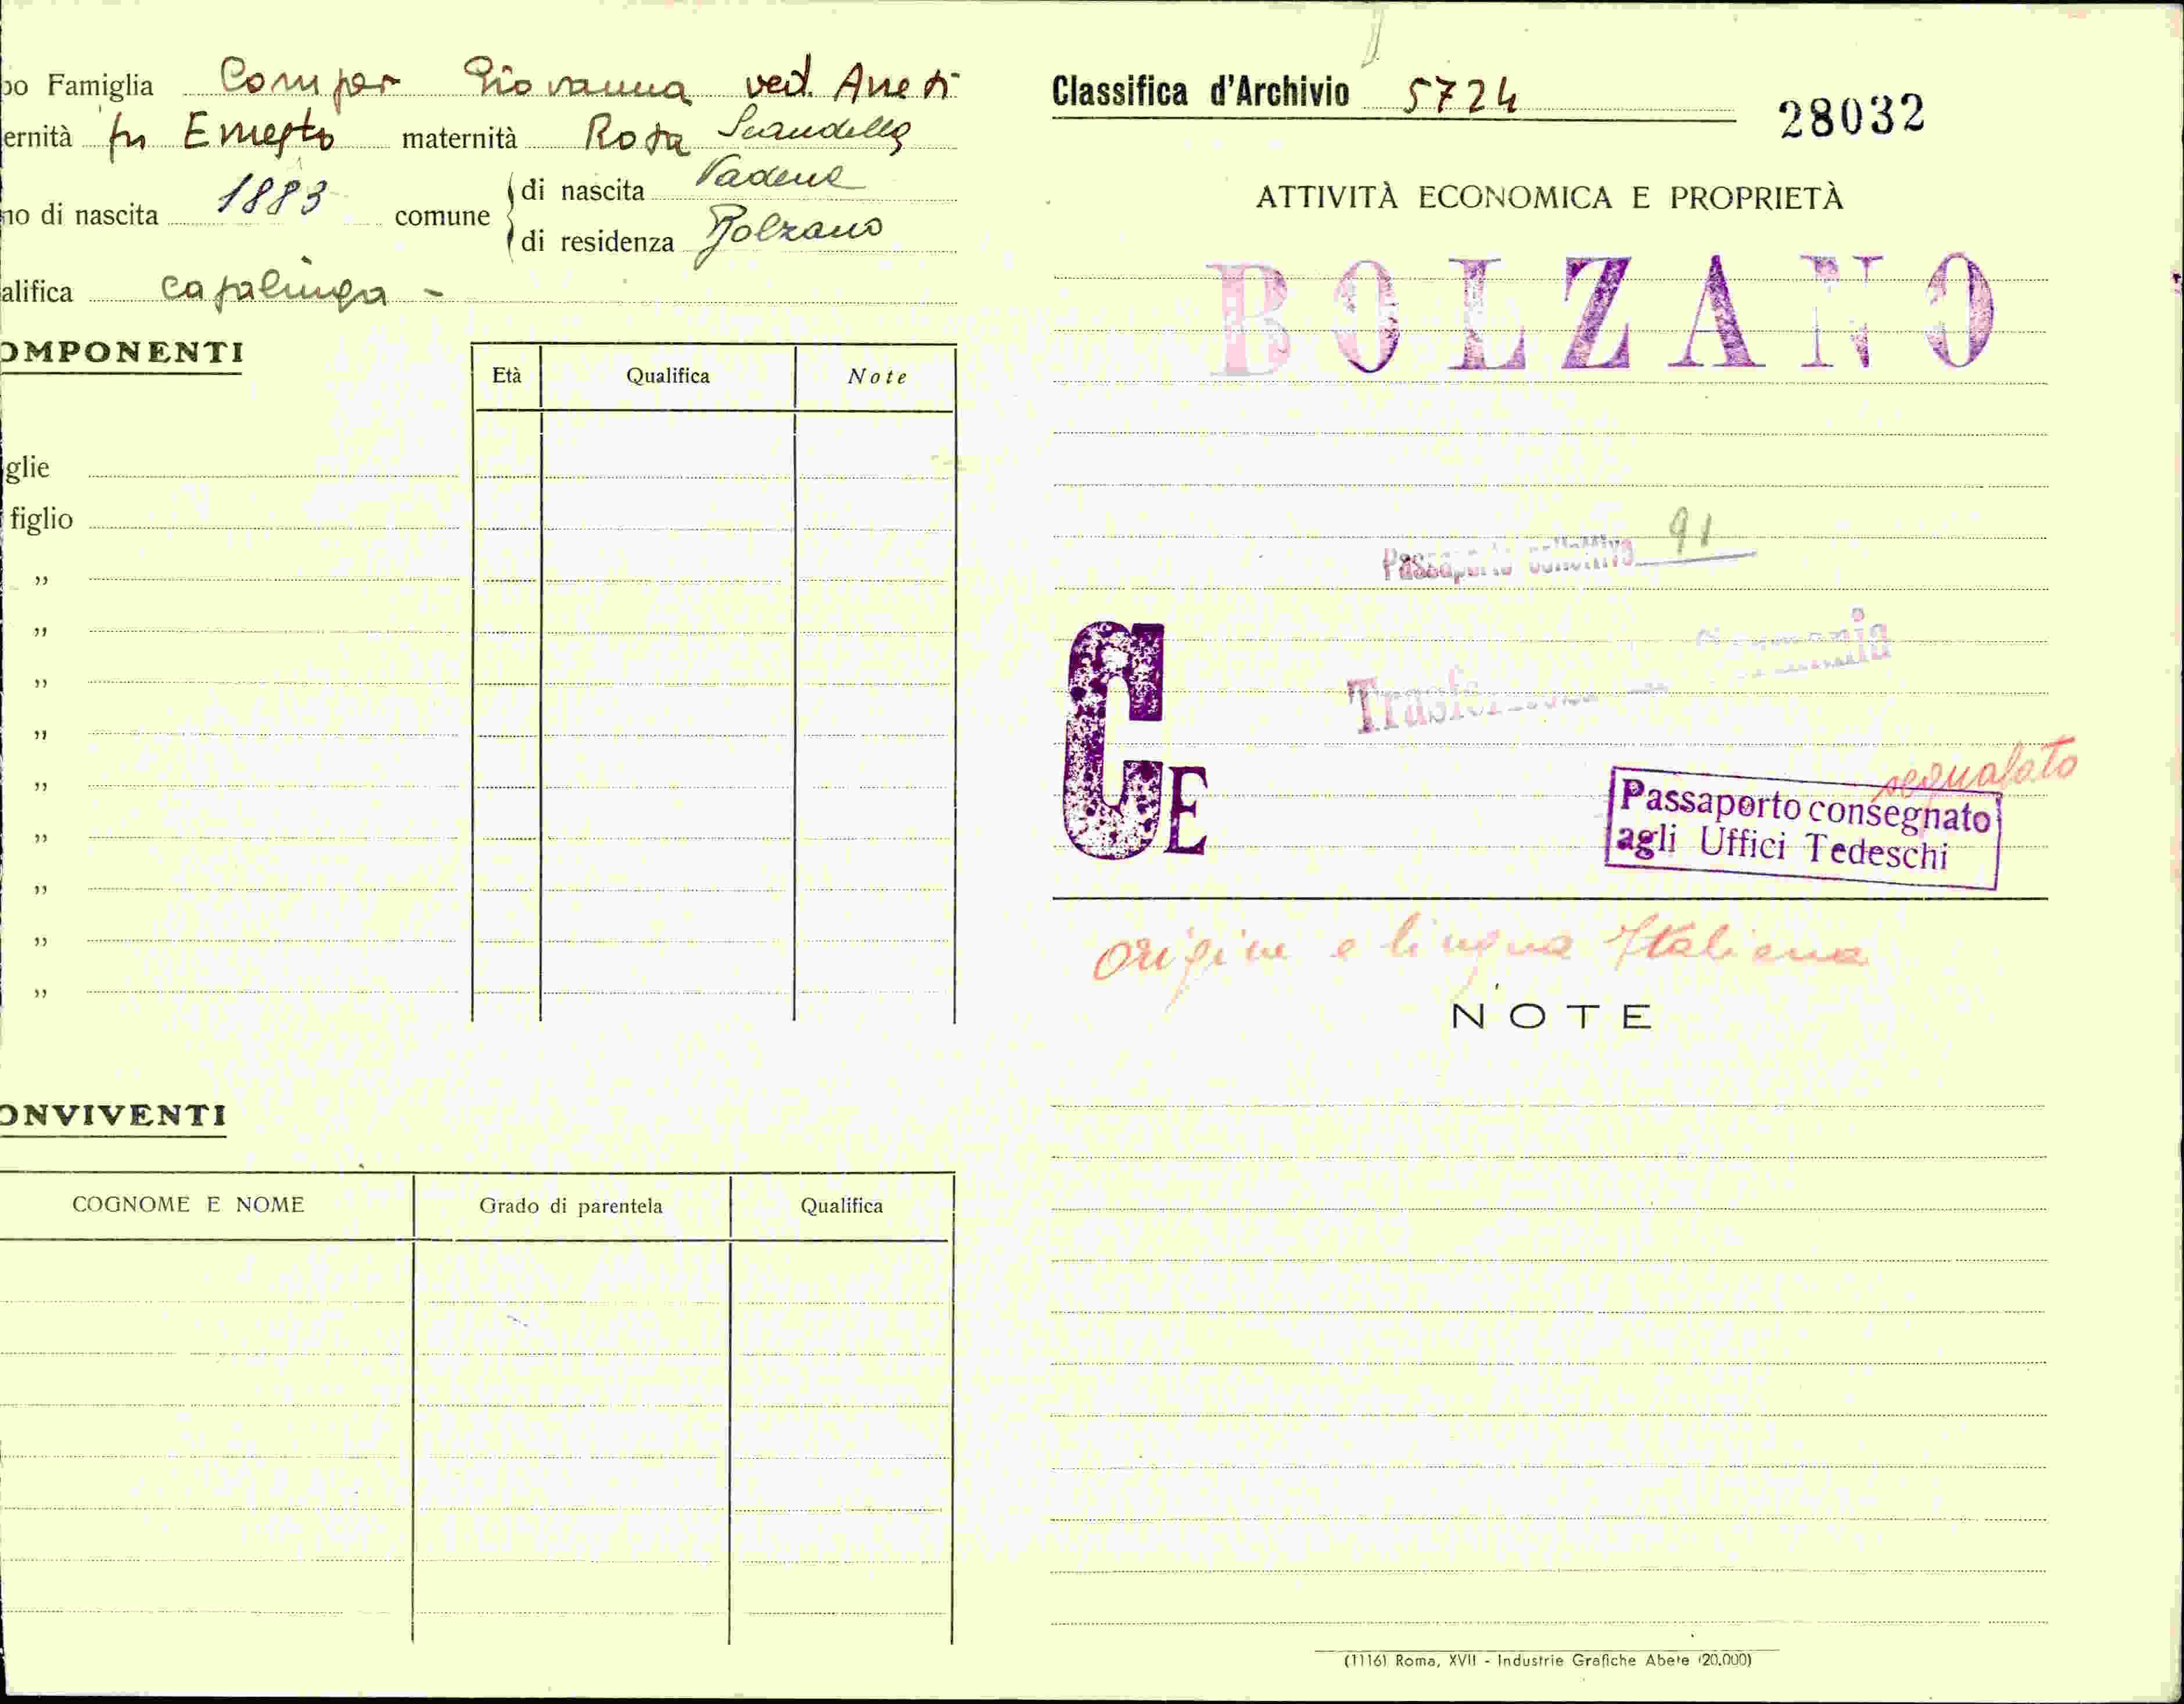 po Famiglia Comper Giovanna ved. Aneti
ernità fu Ernesto maternità Rosa Scandella
no di nascita 1883 comune di nascita Vadena
di residenza Bolzano
alifica casalinga -
OMPONENTI
Età Qualifica Note
glie
figlio
"
"
"
"
"
"
"
"
"
ONVIVENTI
COGNOME E NOME Grado di parentela Qualifica
Classifica d'Archivio 5724
28032
ATTIVITÀ ECONOMICA E PROPRIETÀ
BOLZANO
Passaporto collettivo 91
CE
segnalato
Passaporto consegnato
agli Uffici Tedeschi
origine e lingua Italiana
NOTE
(1116) Roma, XVII - Industrie Grafiche Abete (20.000)